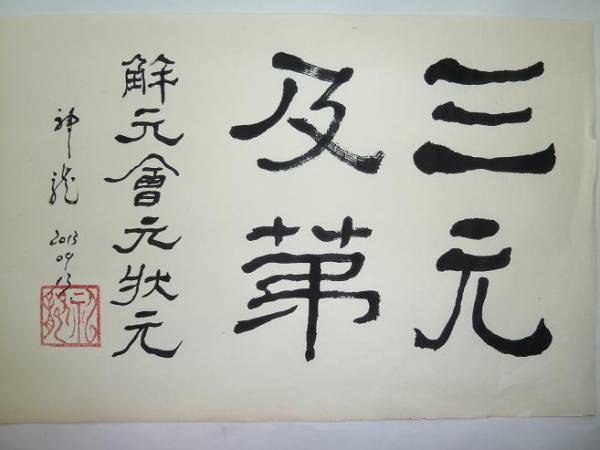 三元
及第
解元會元狀元
神龍
2013
09.13